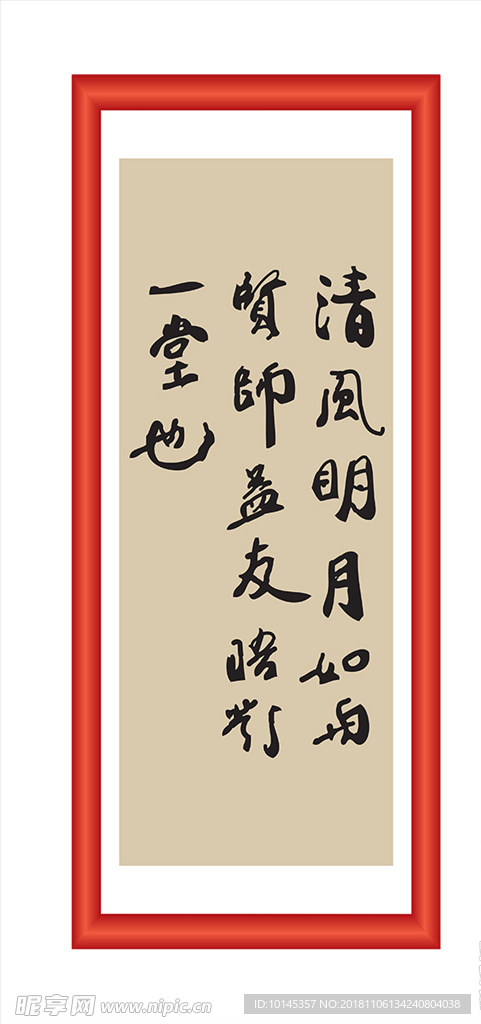 清風明月如與
賢師益友晤對
一堂也
昵享网 www.nipic.cn
ID:10145357 NO:20181106134240804038